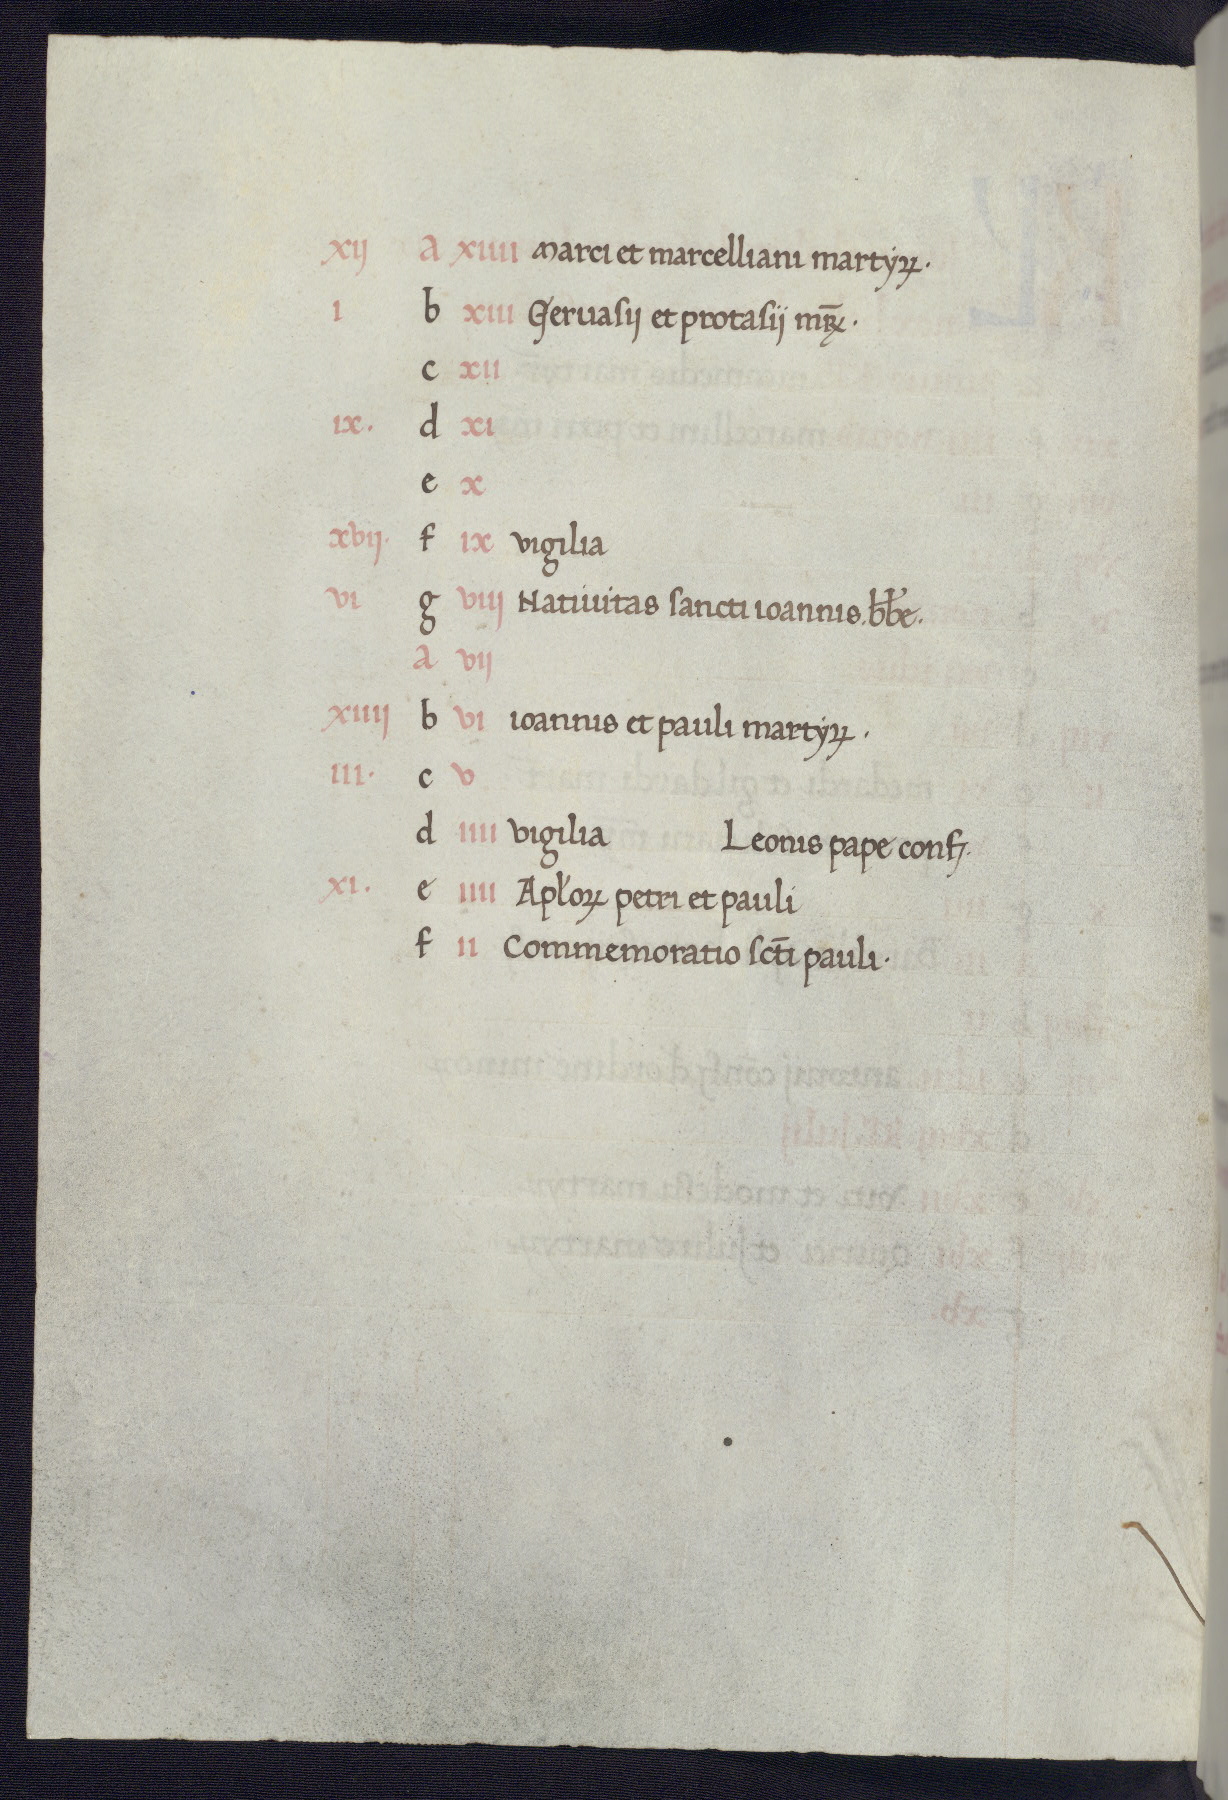 xij A xiiii Marci et marcelliani martyꝝ.
i b xiii Geruasij et protasij mr̄ꝝ.
c xii
ix. d xi
e x
xvij. f ix vigilia
vi g viij Natiuitas sancti ioannis.
A vij
xiiij b vi ioannis et pauli martyꝝ.
iii. c v
d iiii vigilia Leonis pape conf.
xi. e iiii Apłoꝝ petri et pauli
f ii Commemoratio sct̄i pauli.